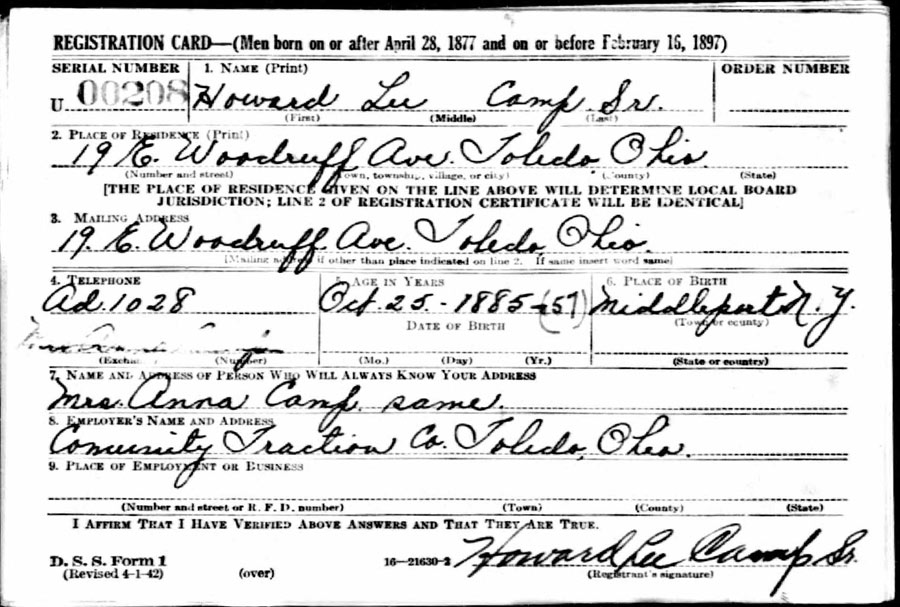 REGISTRATION CARD—(Men born on or after April 28, 1877 and on or before February 16, 1897)
SERIAL NUMBER 1. NAME (Print) ORDER NUMBER
U 00208 Howard Lee Camp Sr.
(First) (Middle) (Last)
2. PLACE OF RESIDENCE (Print)
19 E. Woodruff Ave. Toledo Ohio
(Number and street) (Town, township, village, or city) (County) (State)
[THE PLACE OF RESIDENCE GIVEN ON THE LINE ABOVE WILL DETERMINE LOCAL BOARD
JURISDICTION; LINE 2 OF REGISTRATION CERTIFICATE WILL BE IDENTICAL]
3. MAILING ADDRESS
19. E. Woodruff Ave. Toledo, Ohio.
[Mailing address if other than place indicated on line 2. If same insert word same]
4. TELEPHONE 5. AGE IN YEARS 6. PLACE OF BIRTH
Ad. 1028 Oct. 25 - 1885 (57) Middleport N.Y.
DATE OF BIRTH (Town or county)
(Exchange) (Number) (Mo.) (Day) (Yr.) (State or country)
7. NAME AND ADDRESS OF PERSON WHO WILL ALWAYS KNOW YOUR ADDRESS
Mrs. Anna Camp. same.
8. EMPLOYER'S NAME AND ADDRESS
Comunity Traction Co. Toledo, Ohio.
9. PLACE OF EMPLOYMENT OR BUSINESS
(Number and street or R. F. D. number) (Town) (County) (State)
I AFFIRM THAT I HAVE VERIFIED ABOVE ANSWERS AND THAT THEY ARE TRUE.
D. S. S. Form 1 16—21630-2 Howard Lee Camp Sr.
(Revised 4-1-42) (over) (Registrant's signature)